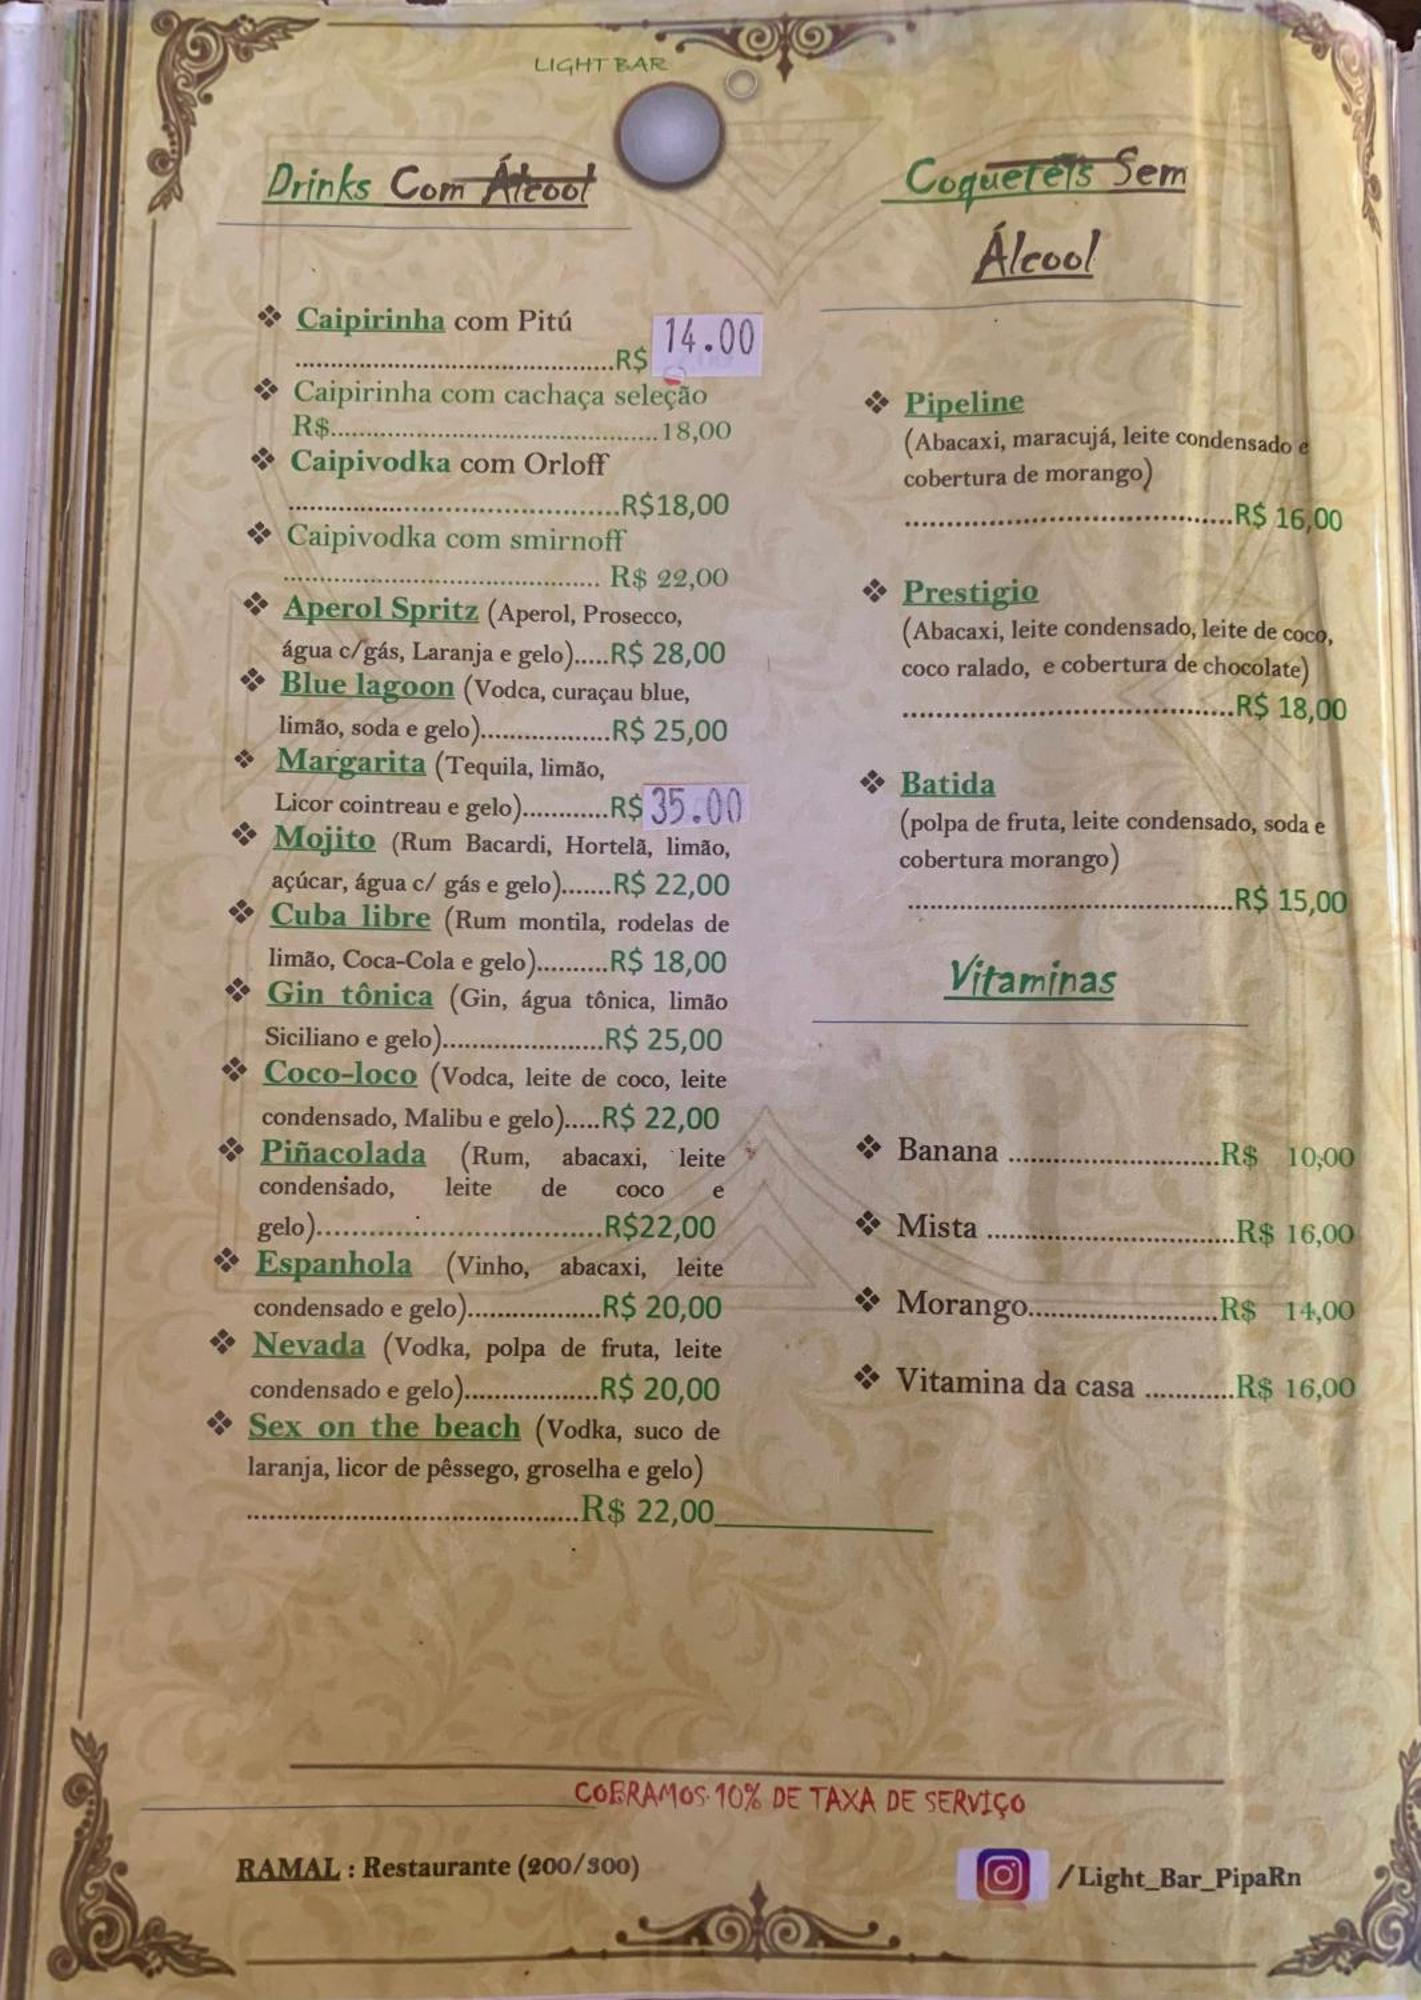 LIGHT BAR
Drinks Com Álcool
Caipirinha com Pitú
......................................R$ 14.00
Caipirinha com cachaça seleção
R$.......................................18,00
Caipivodka com Orloff
.......................................R$18,00
Caipivodka com smirnoff
...................................... R$ 22,00
Aperol Spritz (Aperol, Prosecco,
água c/gás, Laranja e gelo).....R$ 28,00
Blue lagoon (Vodca, curaçau blue,
limão, soda e gelo)..................R$ 25,00
Margarita (Tequila, limão,
Licor cointreau e gelo)............R$ 35.00
Mojito (Rum Bacardi, Hortelã, limão,
açúcar, água c/ gás e gelo).......R$ 22,00
Cuba libre (Rum montila, rodelas de
limão, Coca-Cola e gelo)..........R$ 18,00
Gin tônica (Gin, água tônica, limão
Siciliano e gelo)......................R$ 25,00
Coco-loco (Vodca, leite de coco, leite
condensado, Malibu e gelo).....R$ 22,00
Piñacolada (Rum, abacaxi, leite
condensado, leite de coco e
gelo)......................................R$22,00
Espanhola (Vinho, abacaxi, leite
condensado e gelo)..................R$ 20,00
Nevada (Vodka, polpa de fruta, leite
condensado e gelo)..................R$ 20,00
Sex on the beach (Vodka, suco de
laranja, licor de pêssego, groselha e gelo)
........................................R$ 22,00
Coquetéis Sem
Álcool
Pipeline
(Abacaxi, maracujá, leite condensado e
cobertura de morango)
......................................R$ 16,00
Prestigio
(Abacaxi, leite condensado, leite de coco,
coco ralado, e cobertura de chocolate)
......................................R$ 18,00
Batida
(polpa de fruta, leite condensado, soda e
cobertura morango)
......................................R$ 15,00
Vitaminas
Banana ............................R$ 10,00
Mista .................................R$ 16,00
Morango.........................R$ 14,00
Vitamina da casa ............R$ 16,00
COBRAMOS 10% DE TAXA DE SERVIÇO
RAMAL : Restaurante (200/300)
/Light_Bar_PipaRn